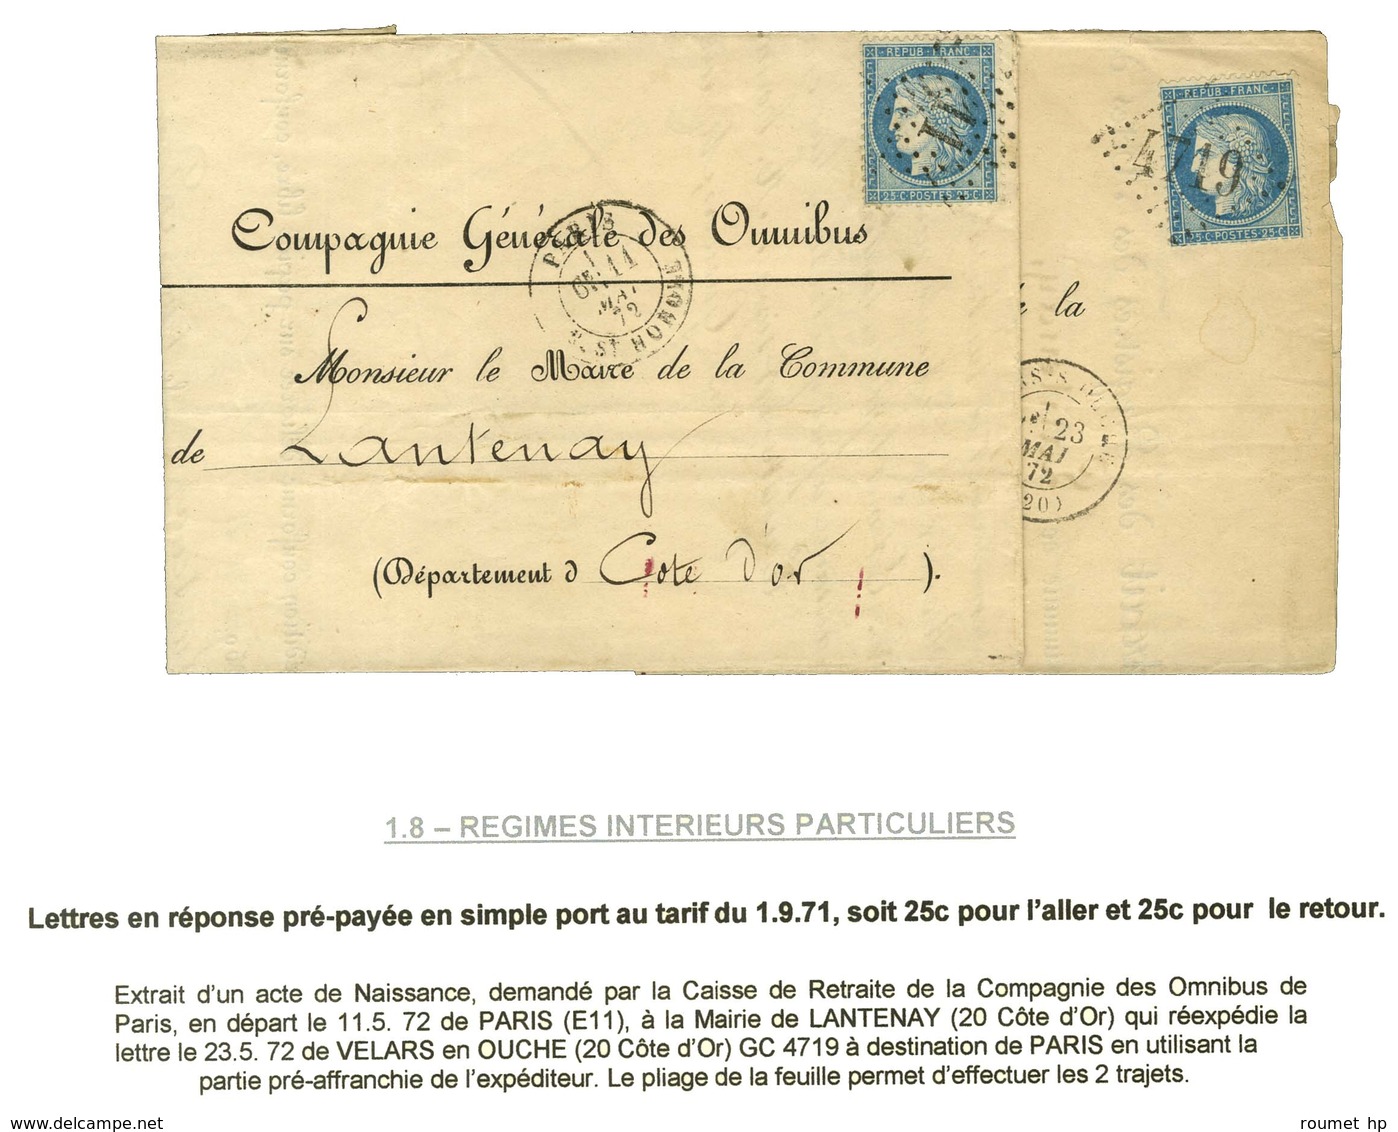 REPUB·FRANC·
11
25·C·POSTES·25·C·
REPUB·FRANC·
4719
25·C·POSTES·25·C·
Compagnie Générale des Omnibus
PARIS
11
MAI
72
R. ST HONORE
Monsieur le Maire de la Commune
de la
de Lantenay
23
MAI
72
(20)
(Département d Cote d'or ).
1.8 – REGIMES INTERIEURS PARTICULIERS
Lettres en réponse pré-payée en simple port au tarif du 1.9.71, soit 25c pour l'aller et 25c pour le retour.
Extrait d'un acte de Naissance, demandé par la Caisse de Retraite de la Compagnie des Omnibus de
Paris, en départ le 11.5. 72 de PARIS (E11), à la Mairie de LANTENAY (20 Côte d'Or) qui réexpédie la
lettre le 23.5. 72 de VELARS en OUCHE (20 Côte d'Or) GC 4719 à destination de PARIS en utilisant la
partie pré-affranchie de l'expéditeur. Le pliage de la feuille permet d'effectuer les 2 trajets.
www.delcampe.net
roumet hp